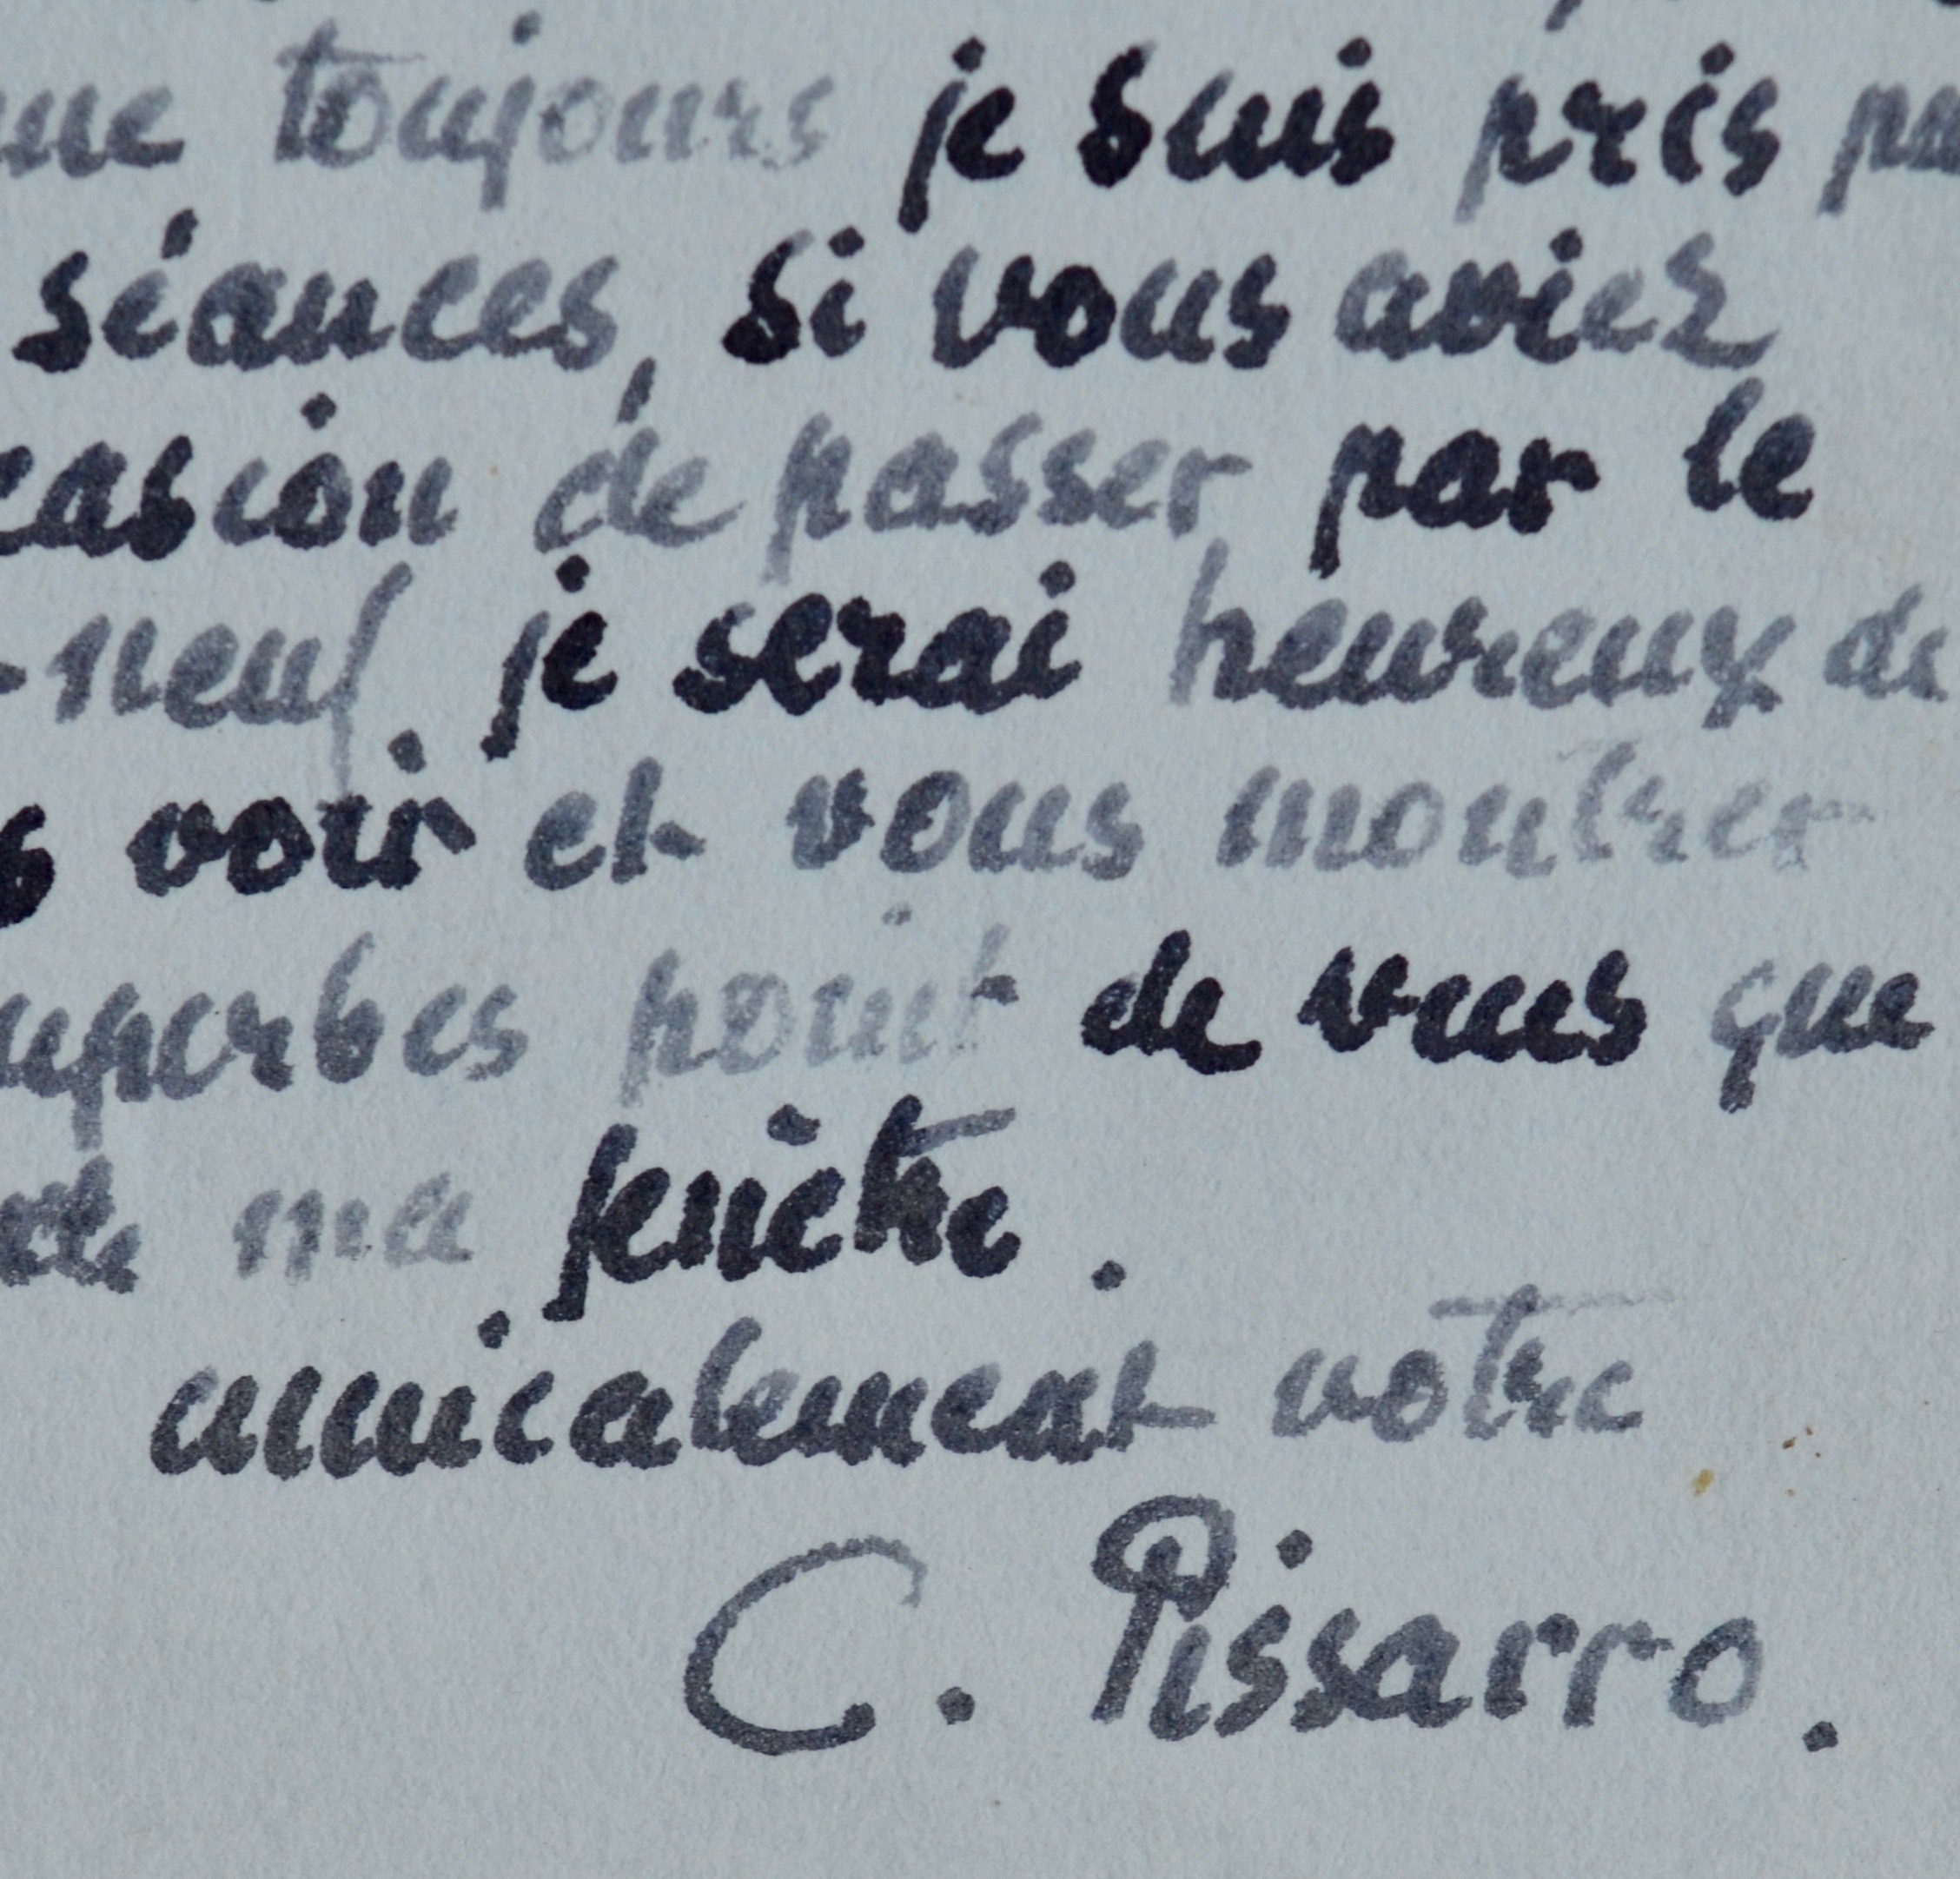 toujours je suis pris
séances, si vous aviez
casion de passer par le
-neuf. je serai heureux de
s voir et vous montrer
uperbes point de vues que
ma fenêtre.
amicalement votre
C. Pissarro.